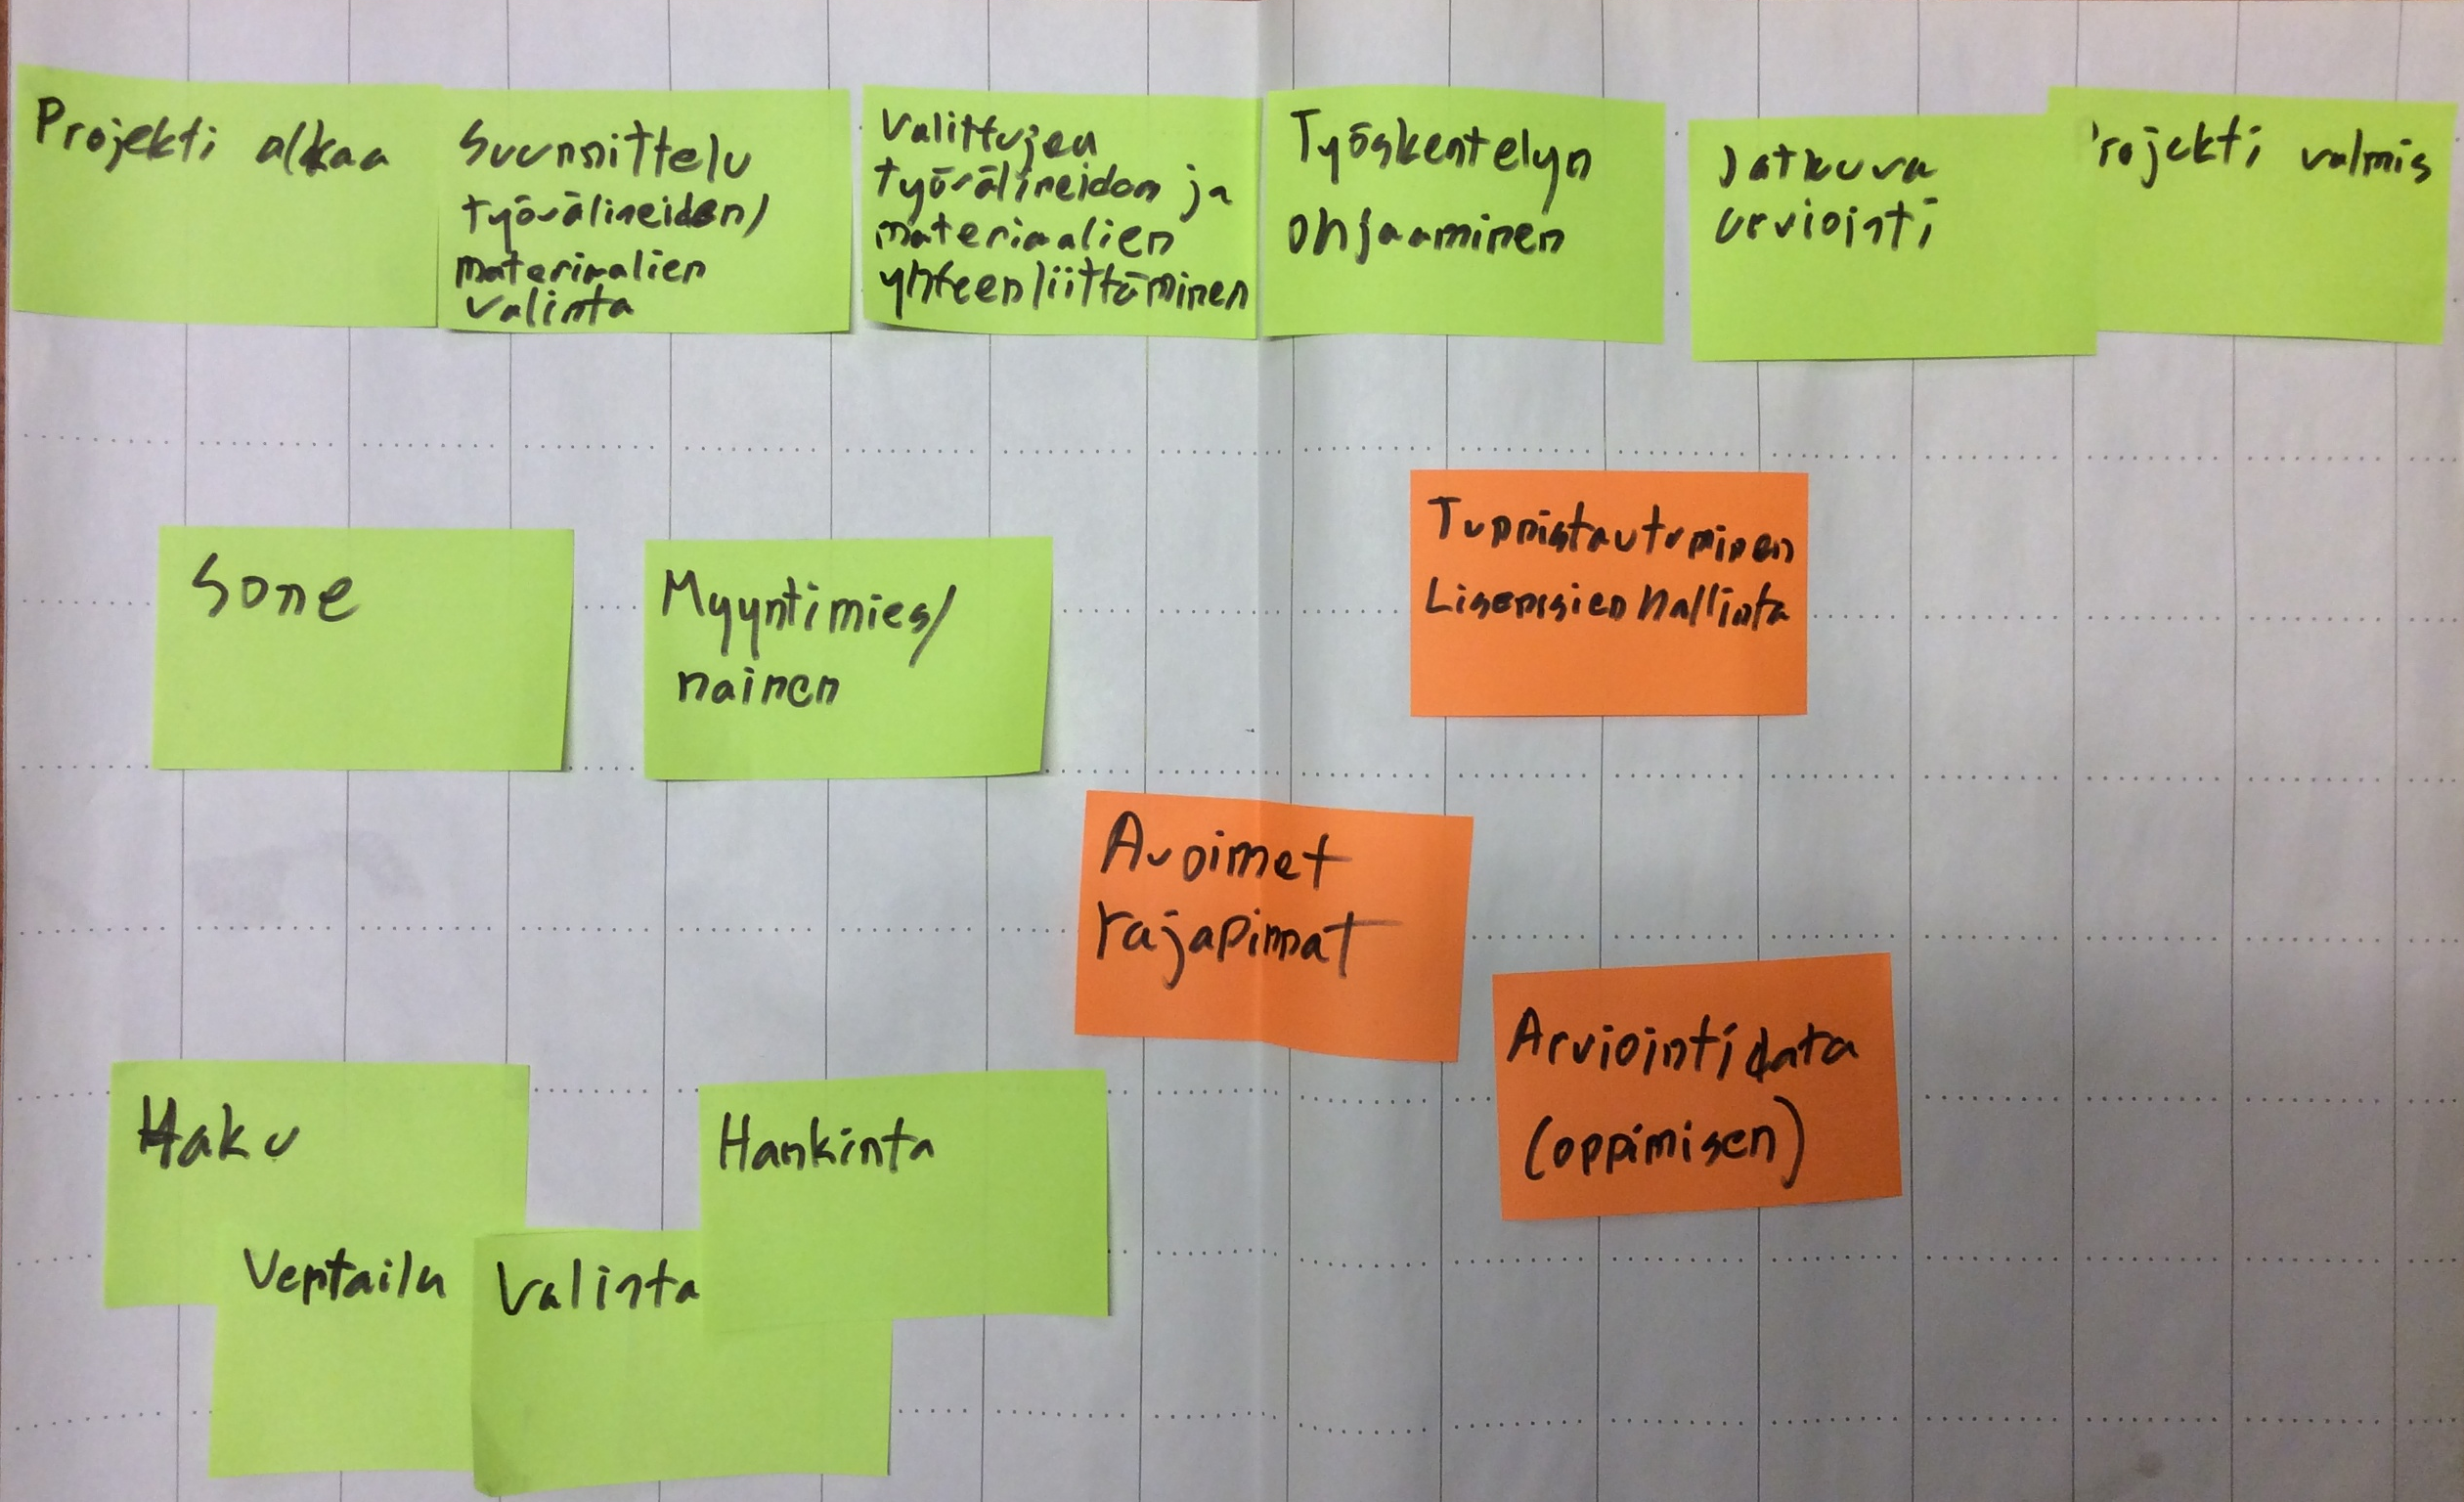 Projekti alkaa
Suunnittelu
työvälineiden/
materiaalien
valinta
Valittujen
työvälineiden ja
materiaalien
yhteenliittäminen
Työskentelyn
ohjaaminen
Jatkuva
arviointi
rojekti valmis
Sone
Myyntimies/
nainen
Tunnistautuminen
Lisenssien hallinta
Avoimet
rajapinnat
Arviointidata
(oppimisen)
Haku
Vertailu
Valinta
Hankinta